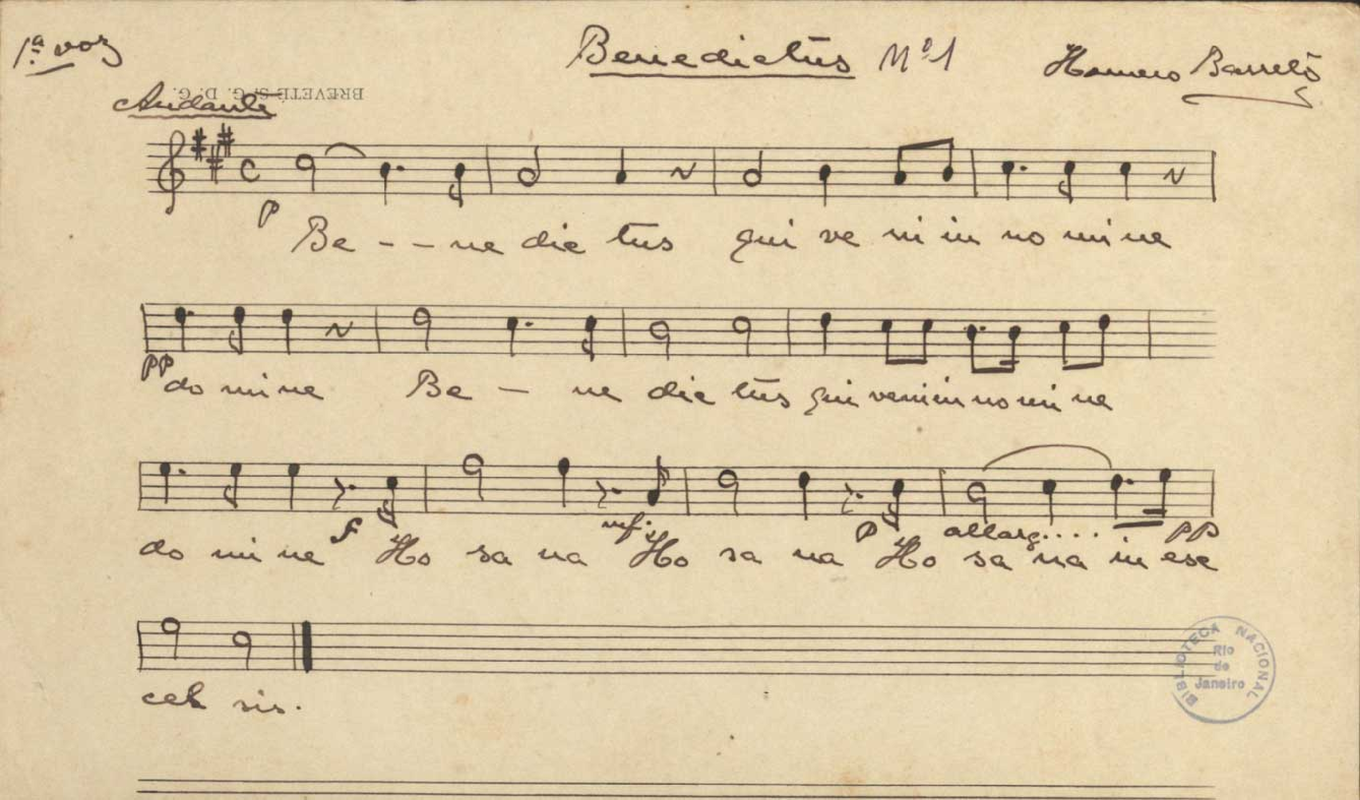 1ª voz
Benedictus Nº 1
Homero Barreto
BREVETÉ S. G. D. G.
Andante
C
p
Be - - ne dic tus qui ve ni in no mi ne
pp
do mi ne Be - ne dic tus qui veni in no mi ne
f mf. p allarg.... pp
do mi ne Ho sa na Ho sa na Ho sa na in exc
cel sis.
BIBLIOTECA NACIONAL
Rio
de
Janeiro